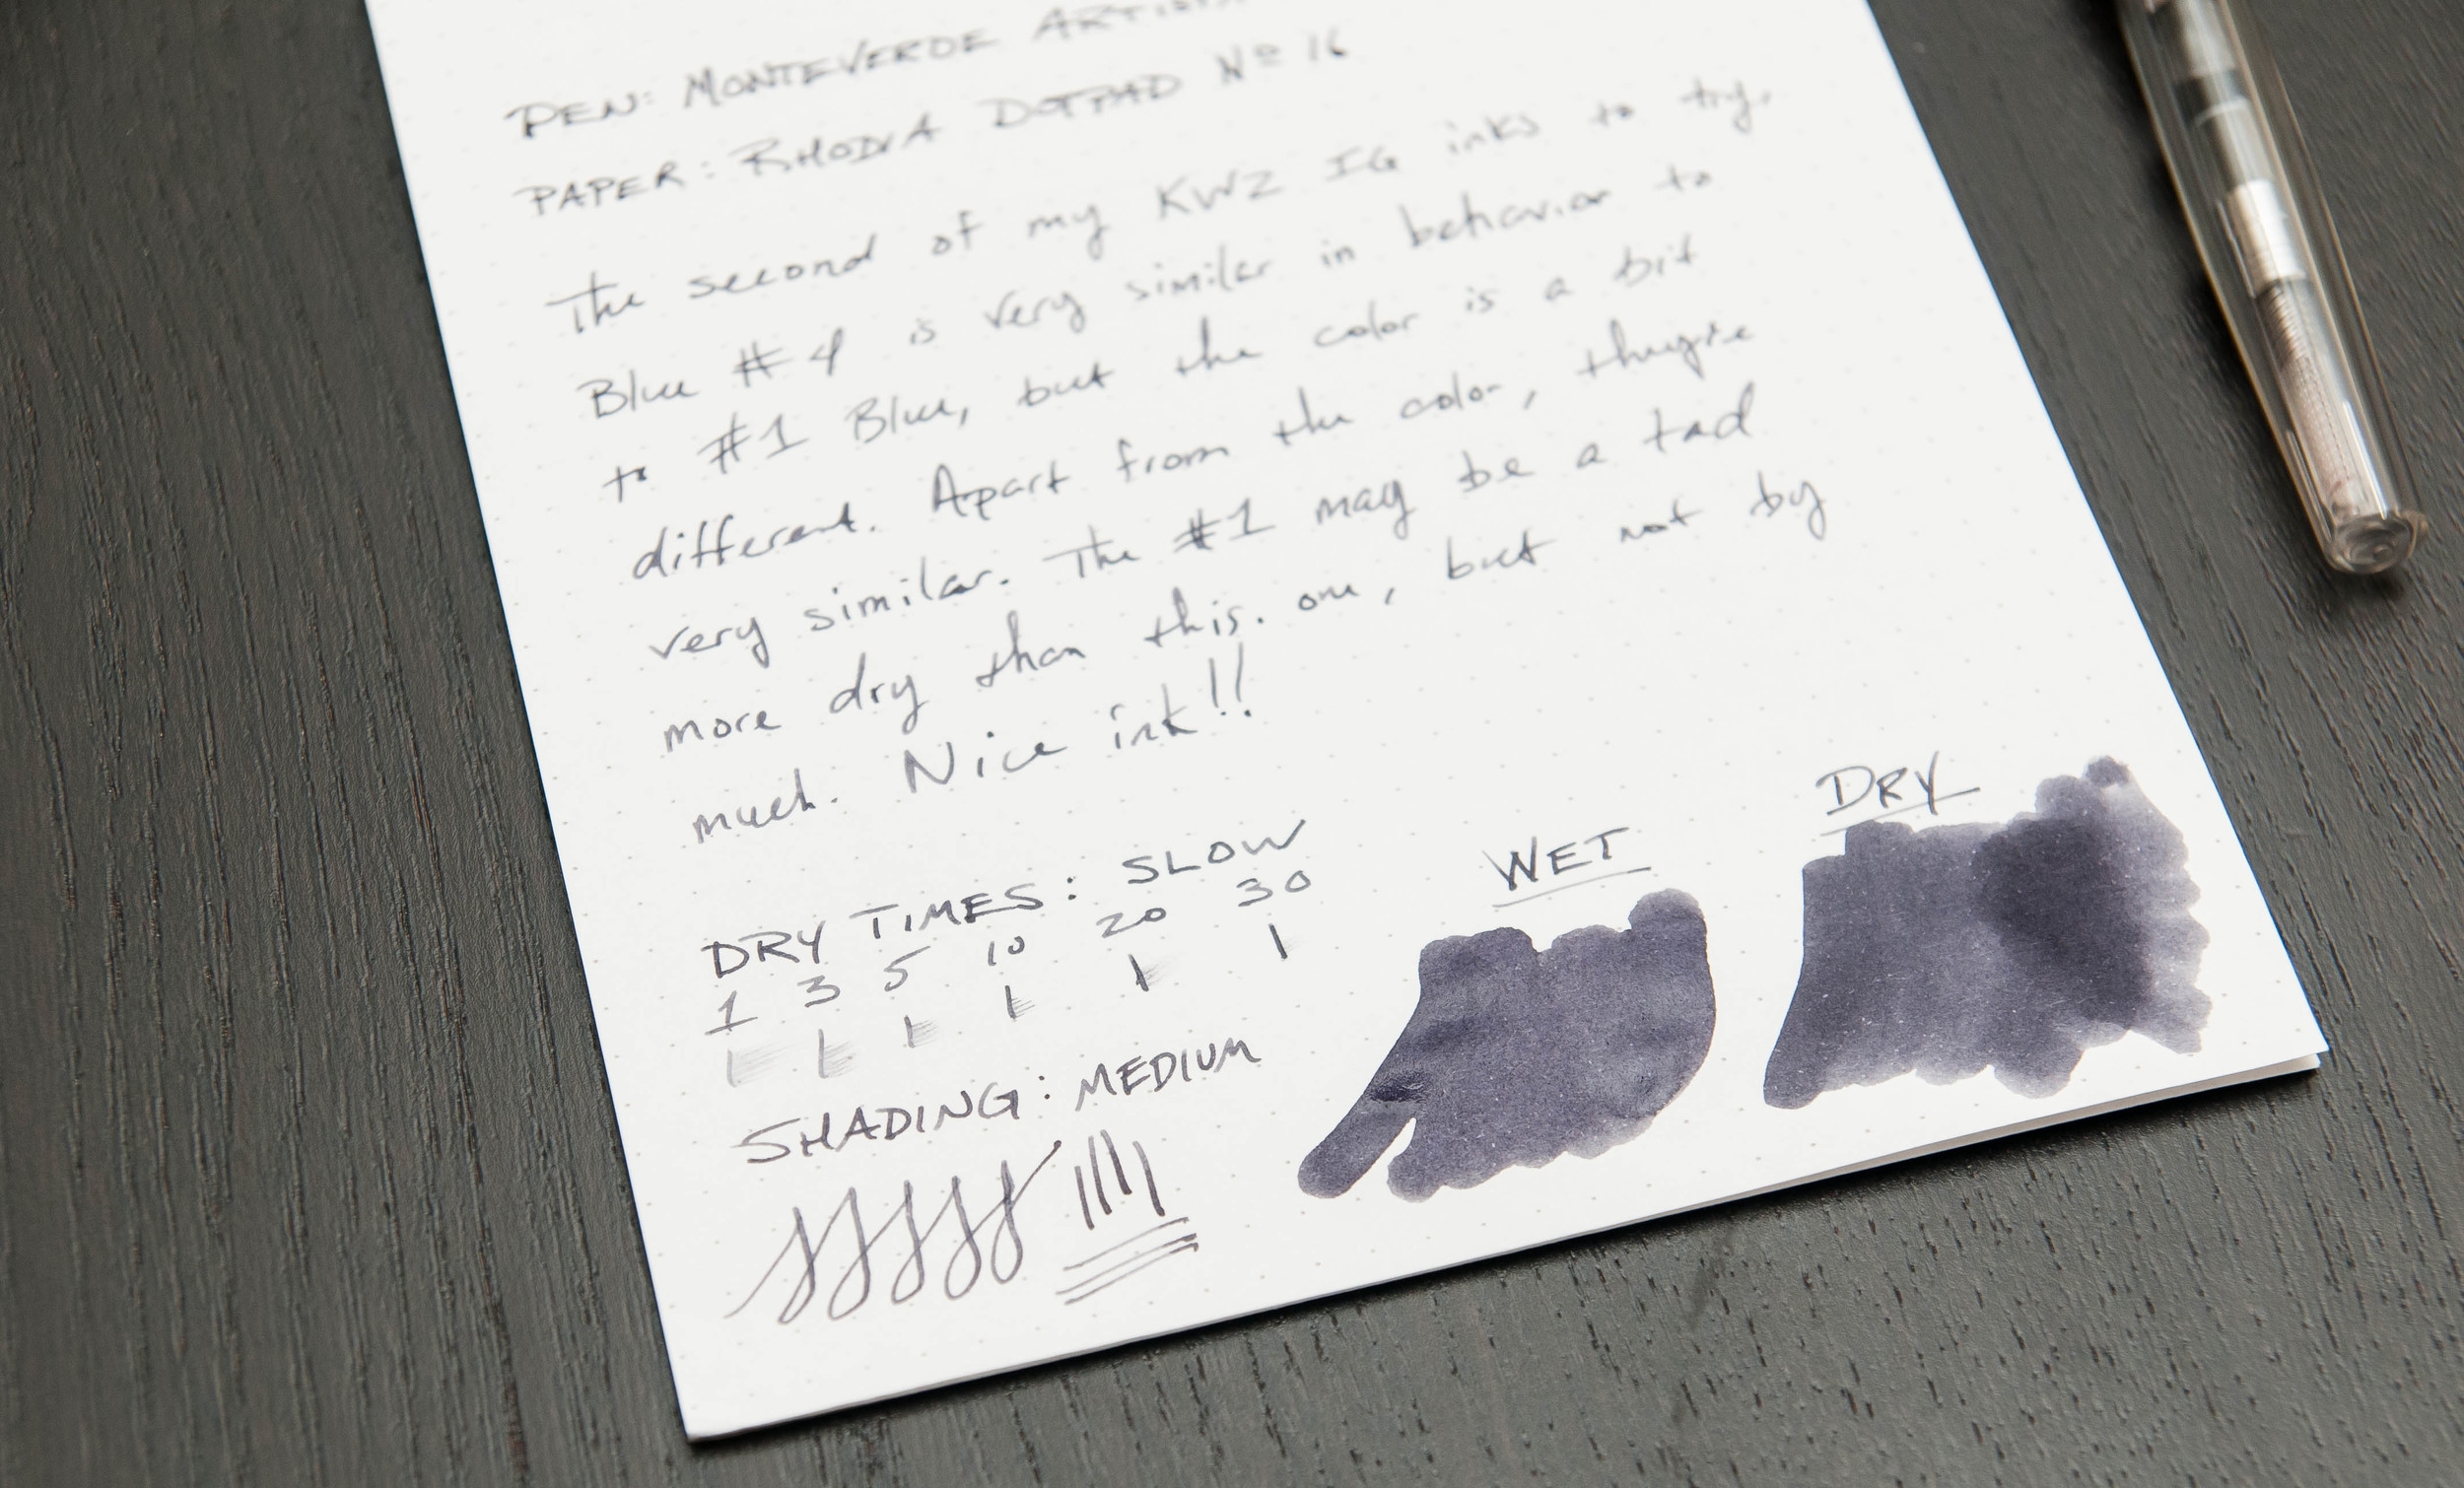 PEN: MONTEVERDE
PAPER: RHODIA DOTPAD Nº 16
The second of my KWZ IG inks to try,
Blue #4 is very similar in behavior to
to #1 Blue, but the color is a bit
different. Apart from the color, they're
very similar. The #1 may be a tad
more dry than this. one, but not by
much. Nice ink!!
DRY TIMES: SLOW
1 3 5 10 20 30
SHADING: MEDIUM
WET
DRY